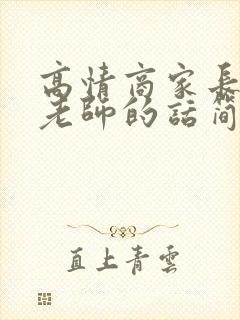 高情商家長
老師的話簡
直上青雲